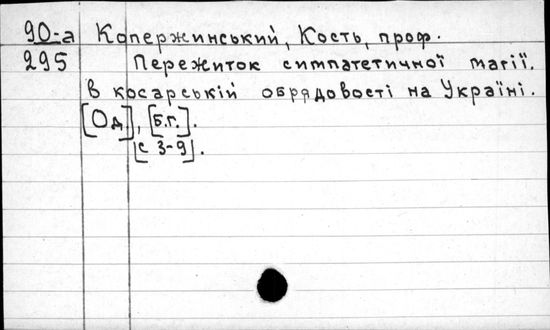 90-а Копержинський, Кость, проф.
295 Пережиток симпатетичної магії.
в косарській обрядовості на Україні.
[Од], [б.г.].
[с 3-9].